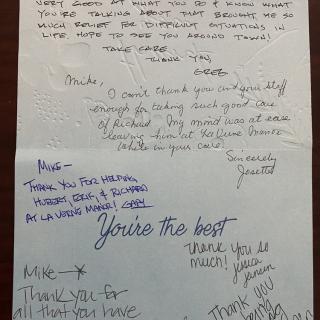 VERY GOOD AT WHAT YOU DO & KNOW WHAT
YOU'RE TALKING ABOUT THAT BROUGHT ME SO
MUCH RELIEF FOR DIFFICULT SITUATIONS IN
LIFE, HOPE TO SEE YOU AROUND TOWN!
TAKE CARE
THANK YOU,
GREG
Mike,
I can't thank you and your staff
enough for taking such good care
of Richard. My mind was at ease
leaving him at La Verne Manor
while in your care.
Sincerely
Josette
MIKE—
THANK YOU FOR HELPING
HUBERT, ERIK, & RICHARD
AT LA VERNE MANOR! GARY
You're the best
Thank you so
much! Jessica
Jensen
Mike—
Thank you for
all that you have
Thank you